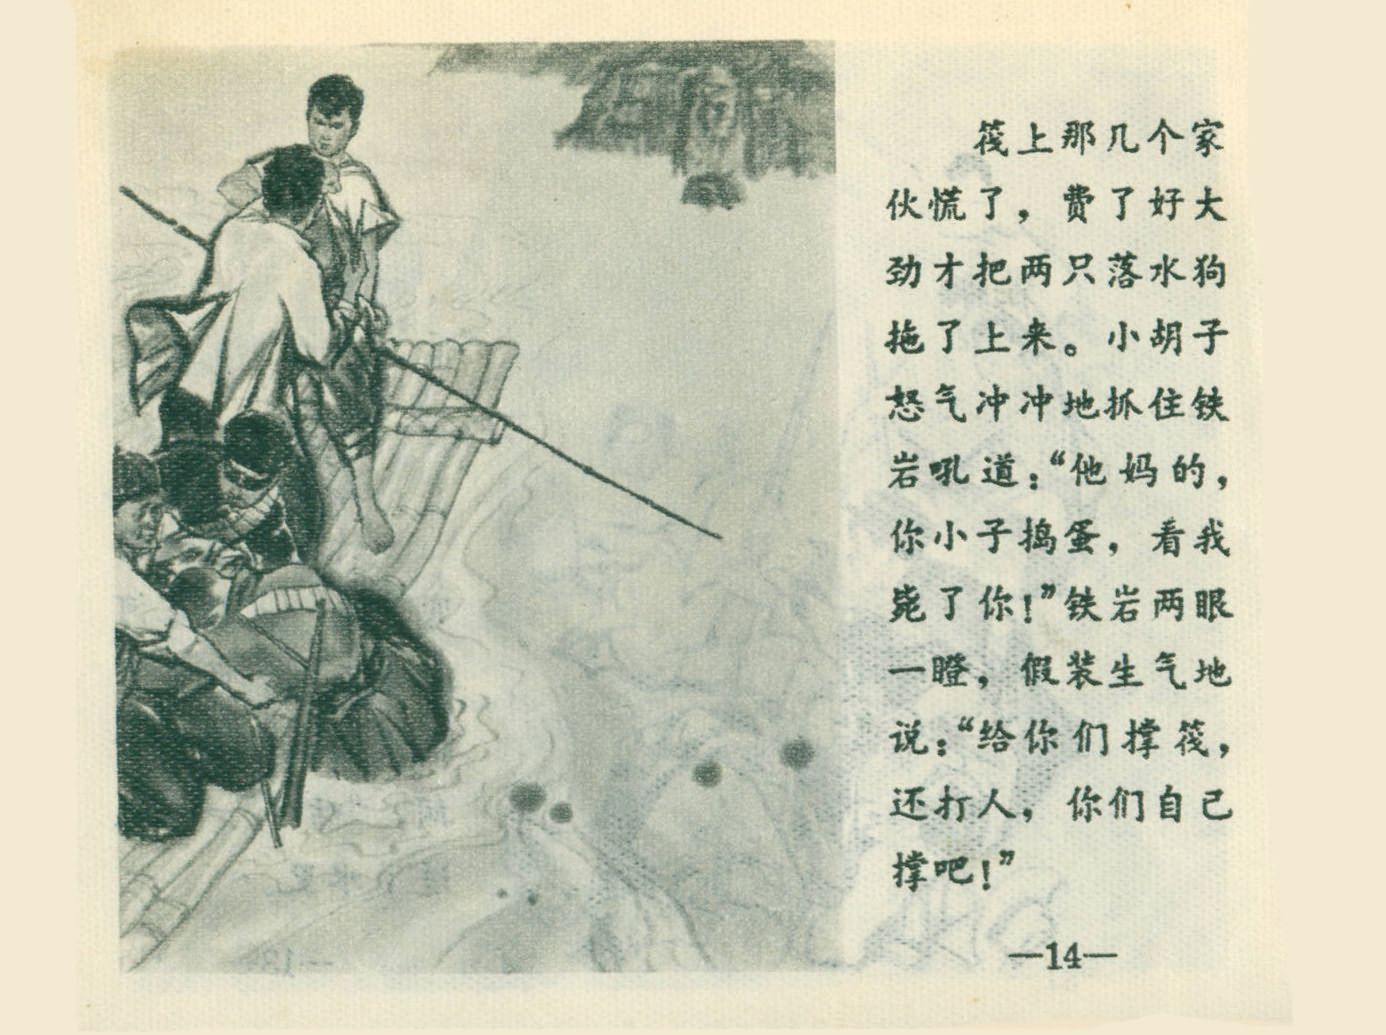 筏上那几个家
伙慌了，费了好大
劲才把两只落水狗
拖了上来。小胡子
怒气冲冲地抓住铁
岩吼道：“他妈的，
你小子捣蛋，看我
毙了你！”铁岩两眼
一瞪，假装生气地
说：“给你们撑筏，
还打人，你们自己
撑吧！”
—14—